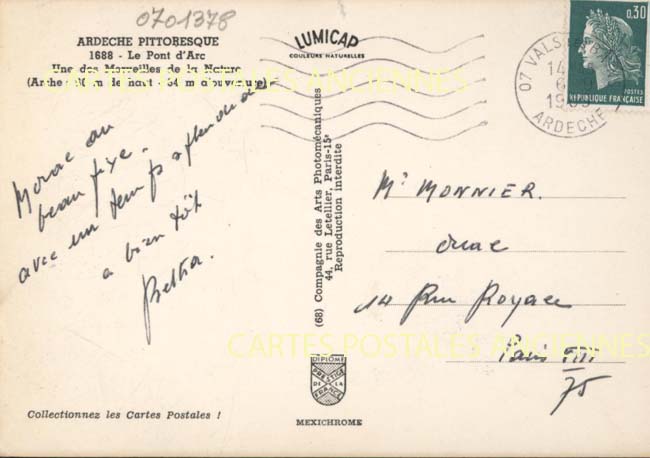 0701378
ARDECHE PITTORESQUE
1688 - Le Pont d'Arc
Une des Merveilles de la Nature
(Arche 30 m de haut - 54 m d'ouverture)
LUMICAP
COULEURS NATURELLES
0,30
POSTES
REPUBLIQUE FRANÇAISE
07 VALS
14
6
19
ARDECHE
Moral au
beau fixe.
avec un temps splendide
a bien tôt
(68) Compagnie des Arts Photomécaniques
44, rue Letellier, Paris-15e
Reproduction interdite
Mr MONNIER.
14 Rue Royale
Paris VIII
75
CARTES POSTALES ANCIENNES
CARTES POSTALES ANCIENNES
DIPLOME
PRESTIGE
DE LA
FRANCE
MEXICHROME
Collectionnez les Cartes Postales !